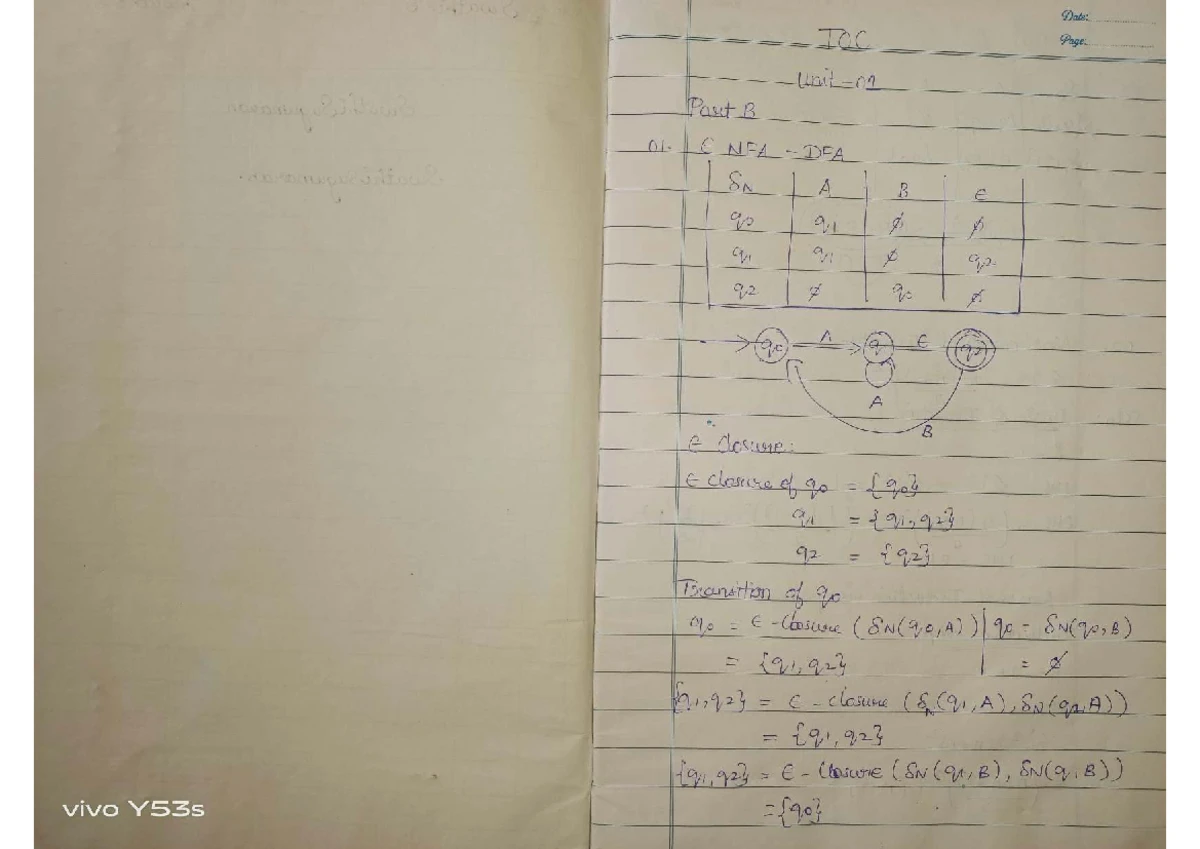 Date:
Page:
TOC
Unit - 01
Part B
01. ∈ NFA - DFA
δN A B ∈
q0 q1 ϕ ϕ
q1 q1 ϕ q2
q2 ϕ q0 ϕ
q0 A q1 ∈ q2
A
B
∈ closure:
∈ closure of q0 = {q0}
q1 = {q1, q2}
q2 = {q2}
Transition of q0
q0 = ∈ - closure (δN(q0, A)) | q0 = δN(q0, B)
= {q1, q2} = ϕ
{q1, q2} = ∈ - closure (δN(q1, A), δN(q2, A))
= {q1, q2}
{q1, q2} = ∈ - closure (δN(q1, B), δN(q, B))
= {q0}
vivo Y53s